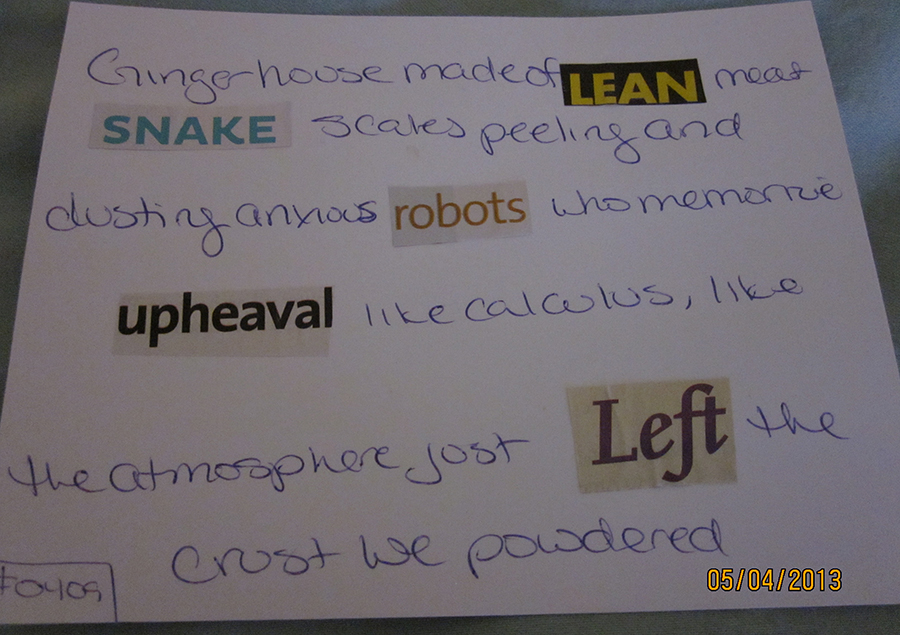 Ginger house made of LEAN meat
SNAKE scales peeling and
dusting anxious robots who memorize
upheaval like calculus, like
the atmosphere just Left the
crust we powdered
F0409
05/04/2013